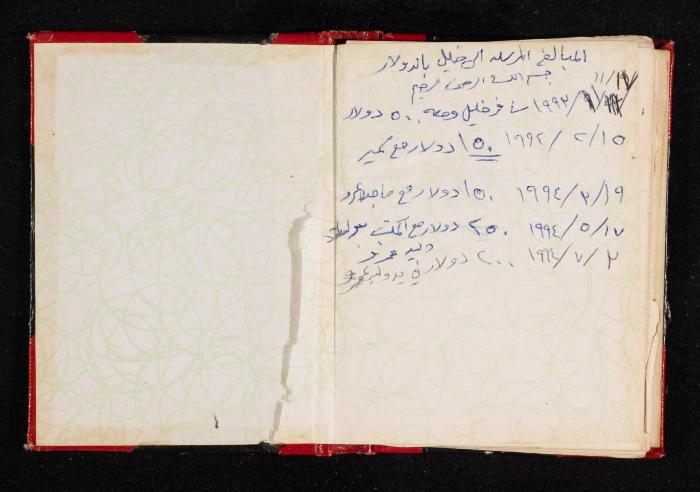 المبالغ المرسله الى خليل بالدولار
بسم الله الرحمن الرحيم
١١/١٧
١٩٩٣ سافر خليل ومعه ٥٠٠ دولار
١٩٩٤/٢/١٥ ١٥٠ دولار مع سمير
١٩٩٤/٣/١٩ ١٥٠ دولار مع
١٩٩٤/٥/١٧ ٢٥٠ دولار مع المكتب
وليد عمرو
١٩٩٤/٧/٢ ٢٠٠ دولار في يد وليد عمرو